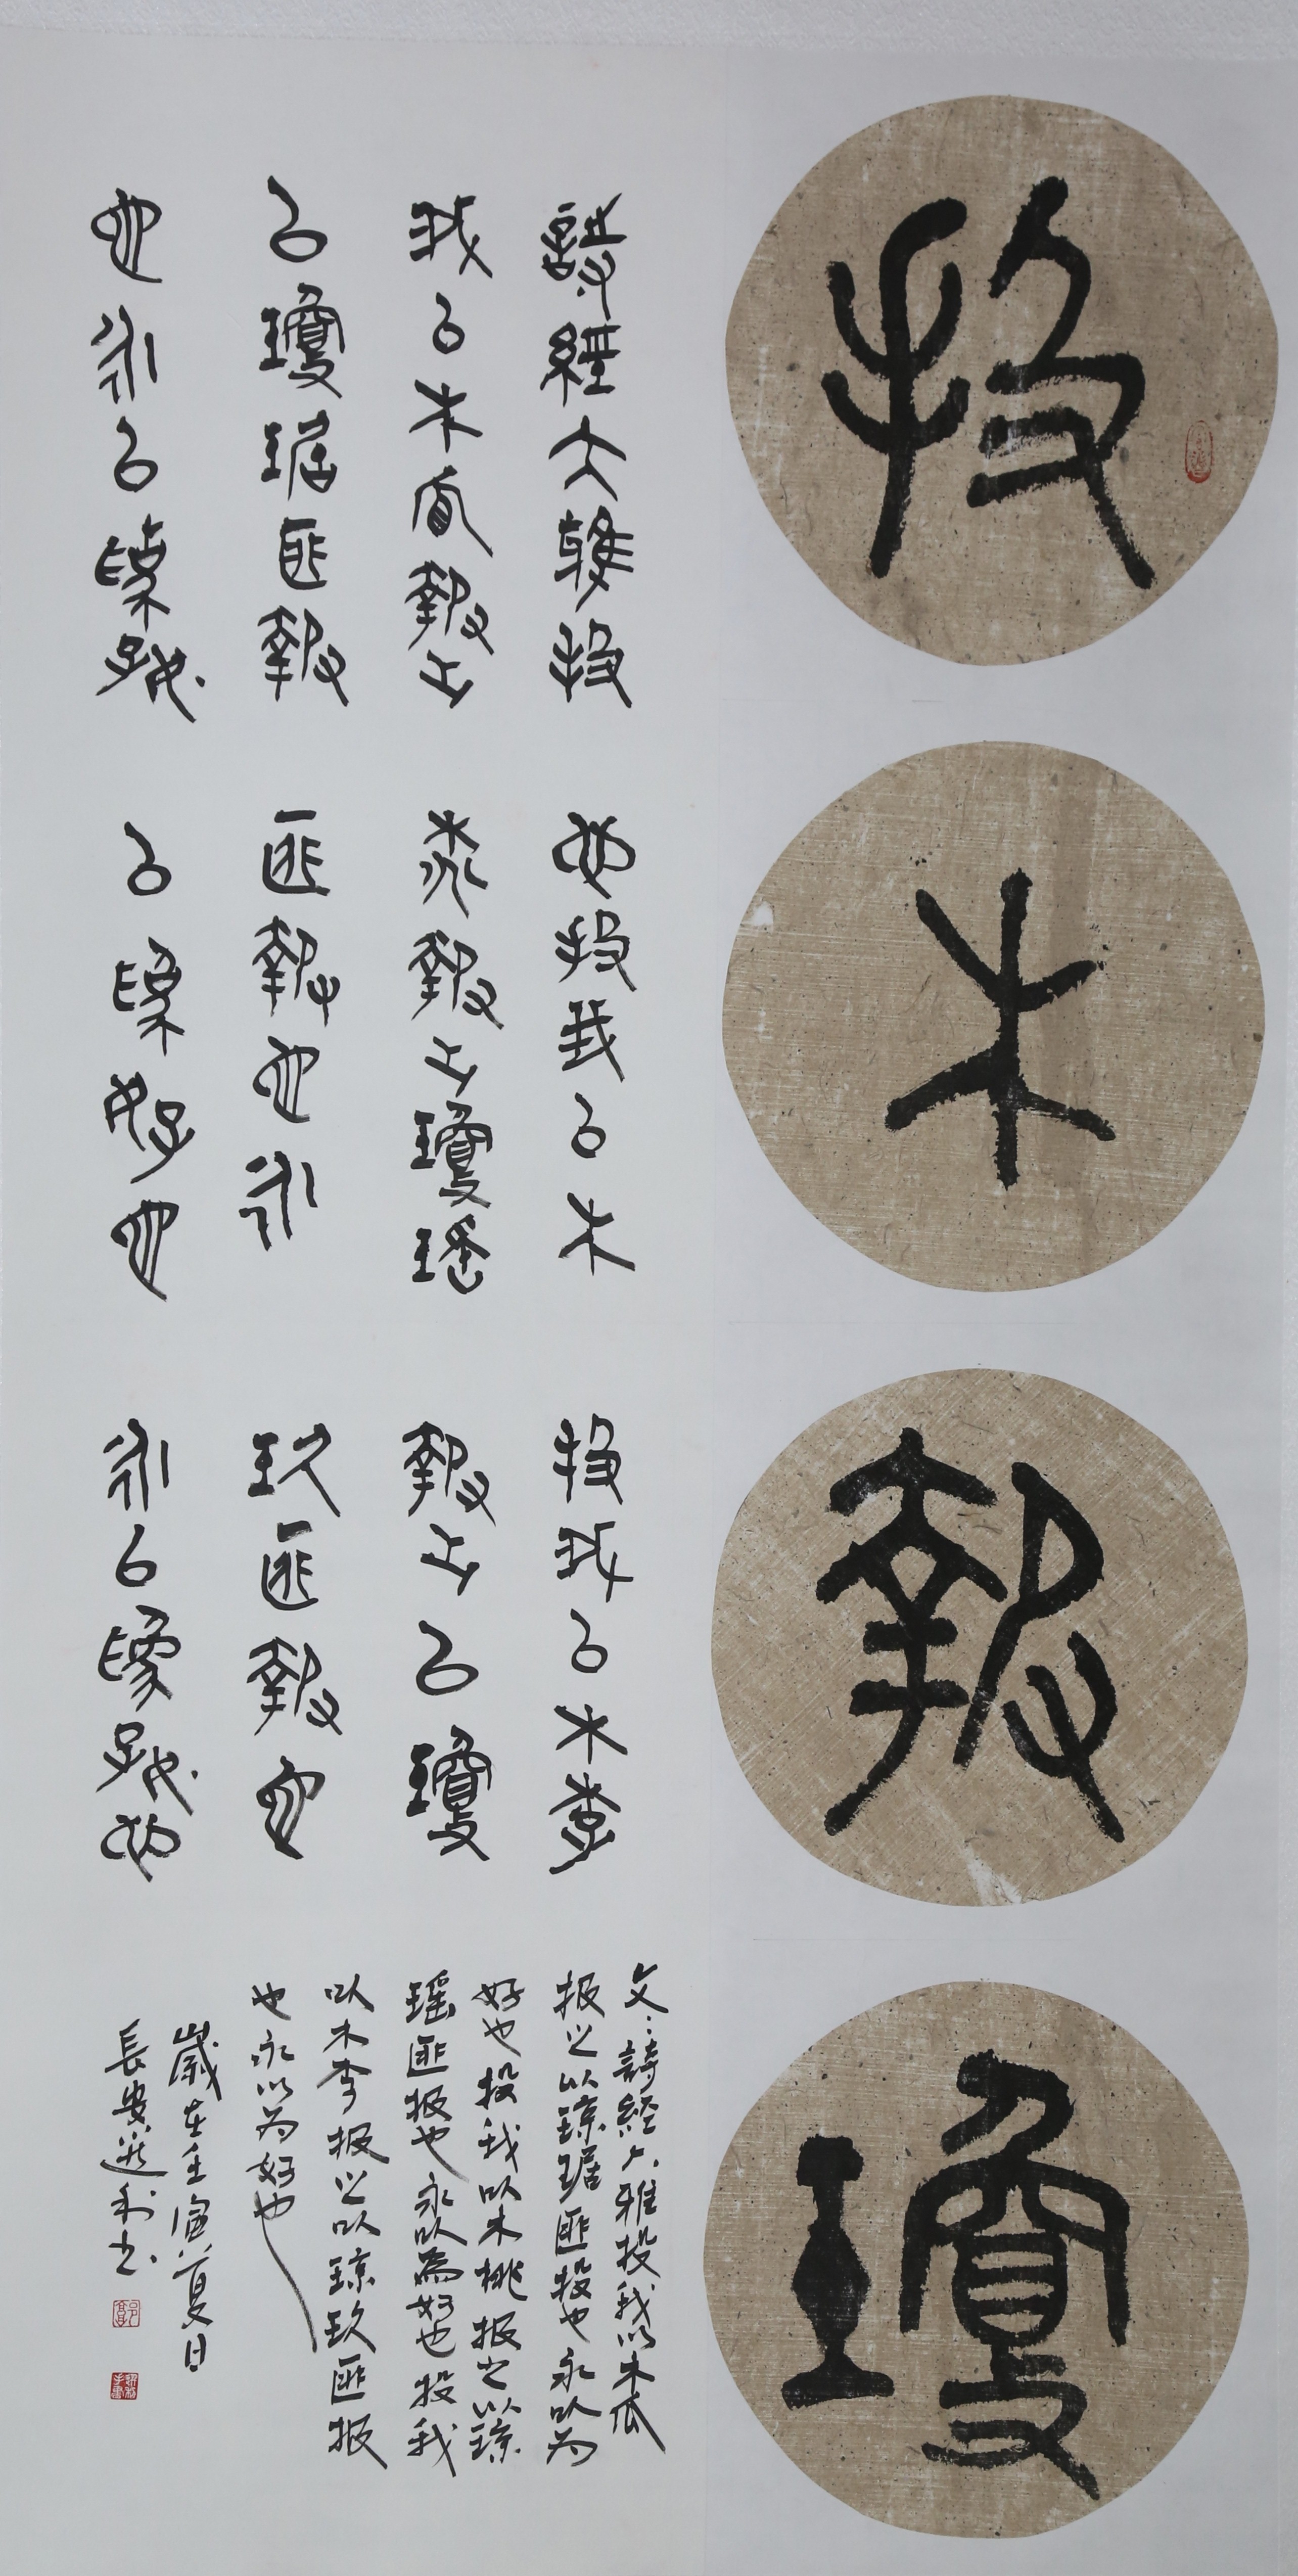 投木報瓊
詩經大雅投
我以木瓜報之
以瓊琚匪報
也永以為好
也投我以木
桃報之瓊瑤
匪報也永
以為好也
投我以木李
報之以瓊
玖匪報也
永以為好也
文：詩經大雅投我以木瓜
报之以琼琚匪投也永以为
好也投我以木桃报之以琼
瑶匪报也永以為好也投我
以木李报之以琼玖匪报
也永以为好也
歲在壬寅夏日
長安利书